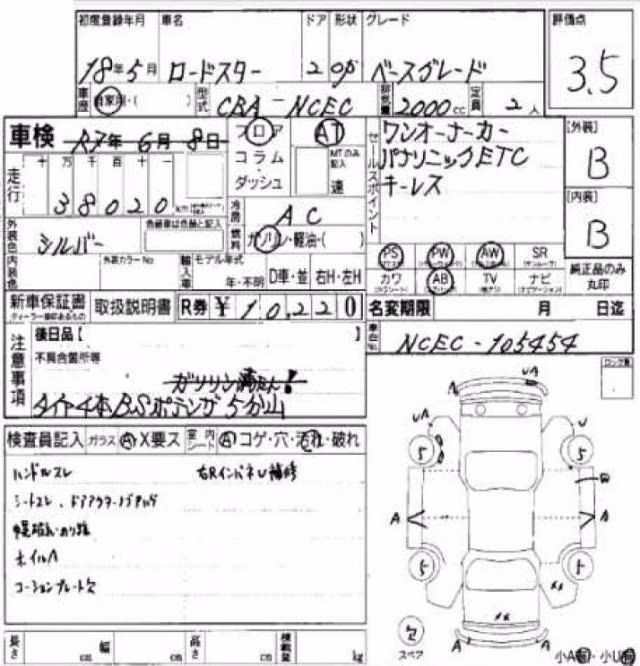 初度登録年月 車名 ドア 形状 グレード 評価点
18年5月 ロードスター 2 OP ベースグレード 3.5
車歴 自家用・( ) 型式 CBA-NCEC 排気量 2000cc 定員 2人
車検 R7年6月8日 フロア コラム・ダッシュ AT MTのみ記入 速
セールスポイント ワンオーナーカー
パナソニックETC
キーレス
[外装] B
[内装] B
走行 十 万 千 百 十 一
38020
冷房 AC
燃料 ガソリン・軽油・( )
外装色 シルバー 色替車は色替と記入
内装色 外装カラーNo. 輸入車 モデル年式 年・不明 D車・並 右H・左H
PS PW AW SR
カワ AB TV ナビ
純正品のみ丸印
新車保証書 取扱説明書 R券 ¥10,220
名変期限 月 日迄
車台No. NCEC-105454
注意事項 後日品【 】
不具合箇所等
ガソリン満タン!
タイヤ4本B.Sポテンザ5分山
検査員記入 ガラス A X要ス 室内シート A コゲ・穴・汚れ・破れ
ハンドルスレ 右RインパネU補修
ホイルA
コーションプレート欠
長さ cm 幅 cm 高さ cm 積載量 kg
A UA
UA U
5 5
A A
5 5
XX
XX
A A
スペア
小A 小U